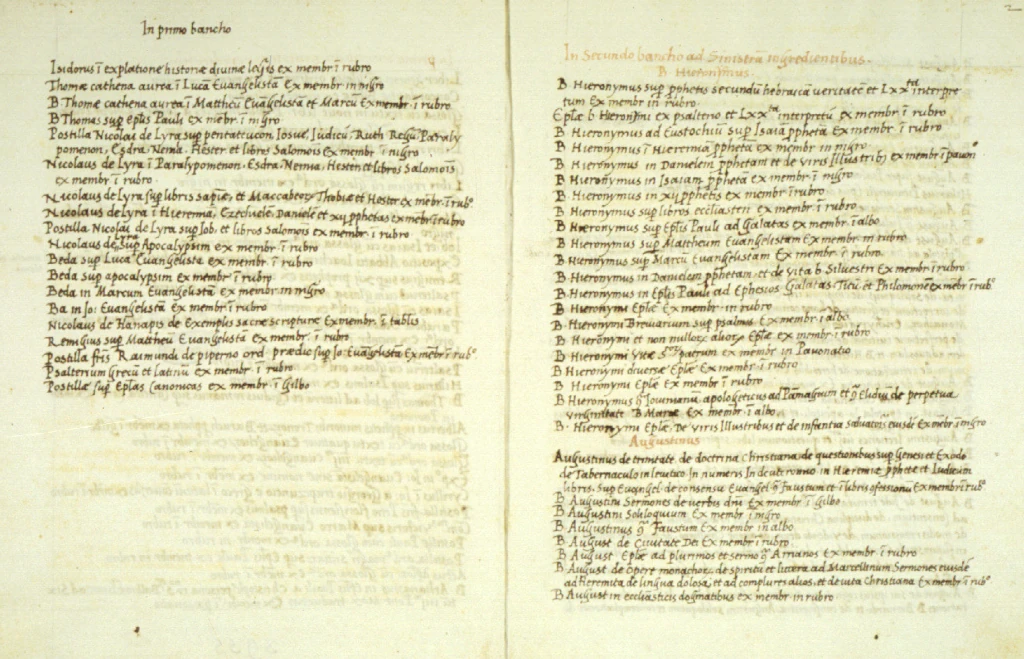 In primo bancho
Isidorus ī explatione historiæ divinæ legis ex membr ī rubro
Thomæ cathena aurea ī Lucā Euangelistā Ex membr in nigro
B Thomæ cathena aurea ī Mattheū Euāgelistā et Marcū Ex membr ī rubro
B Thomas sup eplis Pauli ex mēbr. ī nigro
Postilla Nicolai de Lyra sup pentatteucon, Iosue, Iudicū, Ruth Regū Paraly
pomenon, Esdra, Neemia, Hester et libros Salomōis Ex membr ī nigro
Nicolaus de Lyra ī Paralypomenon, Esdra, Neemia, Hester et libros Salomōis
ex membr ī rubro
Nicolaus de Lyra sup libris sapiæ, et Maccabeoꝝ Thobiæ et Hester ex mēbr. ī rubº
Nicolaus de Lyra ī Hieremia, Ezechiele, Daniele et xij pphetas ex mēbr ī rubro
Postilla Nicolai de Lyra sup Iob, et libros Salomōis ex membr. ī rubro
Nicolaus de Lyra sup Apocalypsim ex membr ī rubro
Beda sup Lucā Euangelistā ex membr ī rubro
Beda sup apocalypsim ex membr ī rubro
Beda in Marcum Euangelistā ex membr in nigro
Ba in Io: Euangelistā Ex membr ī rubro
Nicolaus de Hanapis de Exemplis sacræ scripturæ Ex membr. ī tablis
Remigius sup Mattheū Euangelistā ex membr. ī rubro
Postilla fris Raimundi de piperno ord prædic sup Io: Euāngelistā Ex mēbr ī rubº
Psalterium grecū et latinū ex membr ī rubro
Postillæ sup Eplas Canonicas ex membr ī gilbo
2
In Secundo bancho ad Sinistrā ingredientibus.
B Hieronymus.
B Hieronymus sup pphetis secundū hebraicā veritatē et Lxxta interpre
tum Ex membr in rubro
Eplæ b Hieronymi ex psalterio et Lxxta interpretū ex membr ī rubro
B Hieronymus ad Eustochiū sup Isaiā pphetā Ex membr. ī rubro
B Hieronymus ī Hieremiā ppheta ex membr in nigro
B Hieronymus in Danielem pphetam et de viris Illustribꝫ ex membr ī pavonº
B Hieronymus in Isaiam pphetā ex membr ī nigro
B Hieronymus in xij pphetis ex membr ī rubro
B Hieronymus sup libros eccliastri ex membr ī rubro
B Hieronymus sup Eplis Pauli ad Galatas ex membr. ī albo
B Hieronymus sup Mattheum Euangelistam Ex membr in rubro
B Hieronymus sup Marcū Euangelistam Ex membr ī rubro
B Hieronymus in Danielem pphetam, et de vita b Silvestri Ex membr ī rubro
B Hieronymus in Eplis Pauli ad Ephesios Galatas Titū et Philomonē ex mēbr ī rubº
B Hieronymi Eplæ Ex membr. in rubro
B Hieronymi Breviarium sup psalmos Ex membr ī albo
B Hieronymi et non nulloꝝ alioꝝ Eplæ ex membr ī rubro
B Hieronymi Vitæ patrum ex membr in Pavonatio
B Hieronymi diversæ Eplæ Ex membr ī rubro
B Hieronymi Eplæ Ex membr ī rubro
B Hieronymus ꝯ Iovinianū apologeticus ad Pāmagium et ꝯ Elidiū de perpetua
virginitate B Mariæ Ex membr ī albo
B Hieronymi Eplæ. De viris Illustribus et de infantia salvatoris eiusdē Ex mēbr ī nigro
Augustinus
Augustinus de trinitate, de doctrina christiana, de questionibus sup Genesi et Exodo
de Tabernaculo in levitico In numeris In deuteronomio in Hieremia pphete et Iudicum
libris, sup Evangel, de consensu Evangel ꝯ faustum et ī libris ꝯfessionū Ex membr ī rubº
B Augustini Sermones de verbis dñi Ex membr ī gilbo
B Augustini Soliloquium Ex membr ī nigro
B Augustinus ꝯ Faustum Ex membr in albo
B August de Civitate Dei Ex membr ī rubro
B August Eplæ ad plurimos et sermo ꝯ Arrianos Ex membr ī rubro
B August de Opere monachoꝝ, de spiritu et littera ad Marcellinum Sermones eiusdē
ad Heremitas de lingua dolosa, et ad complures alios, et de vita christiana Ex membr ī rubº
B August in ecclīasticis dogmatibus ex membr in rubro